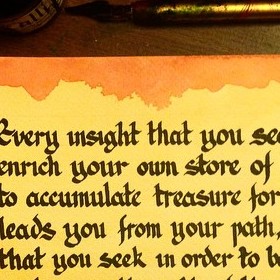 Every insight that you see
enrich your own store of
to accumulate treasure for
leads you from your path,
that you seek in order to